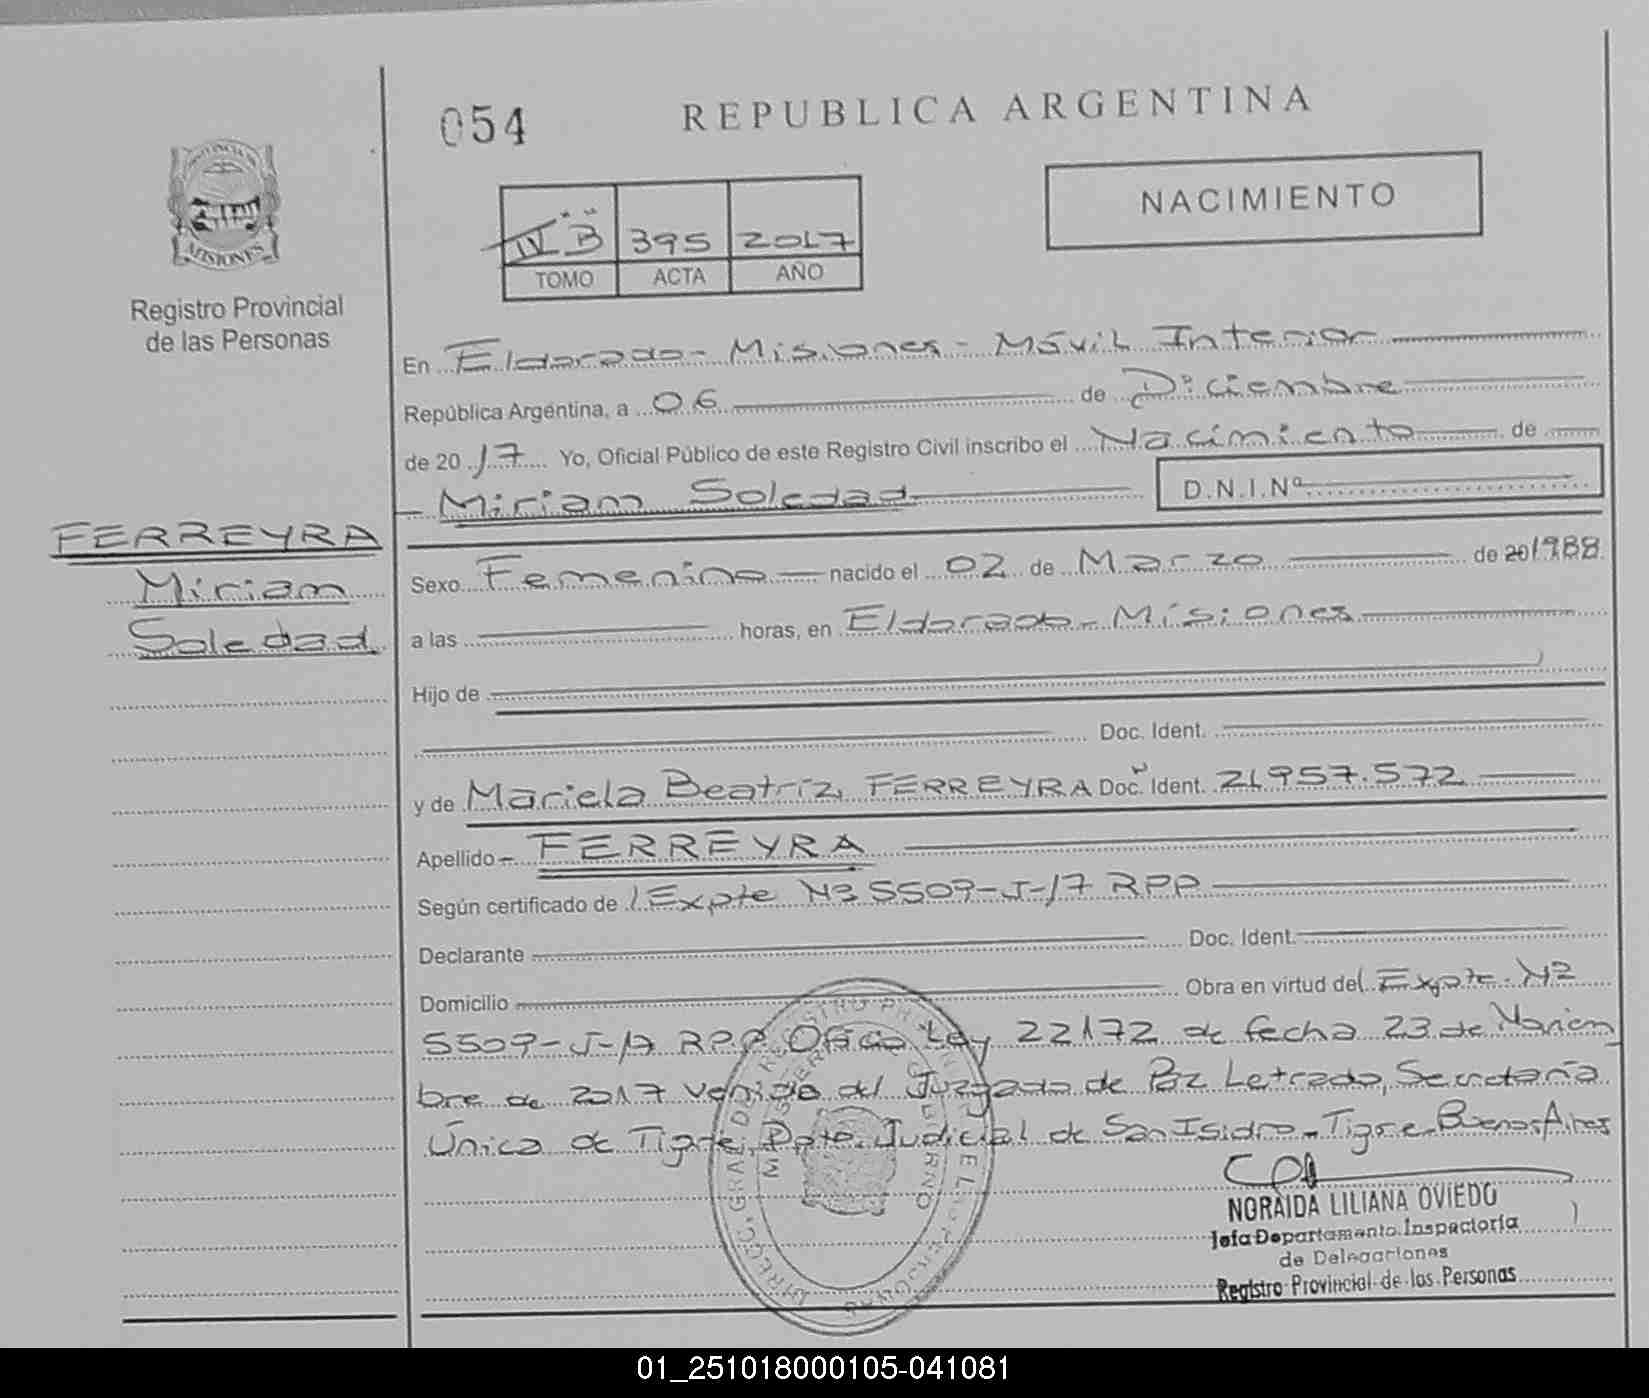 054
REPUBLICA ARGENTINA
PROVINCIA DE
MISIONES
Registro Provincial
de las Personas
IV B 395 2017
TOMO ACTA AÑO
NACIMIENTO
En Eldorado - Misiones - Móvil Interior
República Argentina, a 06 de Diciembre
de 2017 Yo, Oficial Público de este Registro Civil inscribo el Nacimiento de
Miriam Soledad D.N.I.Nº
FERREYRA
Miriam
Soledad
Sexo Femenino nacido el 02 de Marzo de 20 1988
a las horas, en Eldorado - Misiones
Hijo de
Doc. Ident.
y de Mariela Beatríz, FERREYRA Doc. Ident. 21957.572
Apellido - FERREYRA
Según certificado de Expte Nº 5509-J-17 RPP
Declarante Doc. Ident.
Domicilio Obra en virtud del Expte. Nº
5509-J-17 RPP Oficio Ley 22172 de fecha 23 de Noviem
bre de 2017 venido del Juzgado de Paz Letrado, Secretaría
Única de Tigre, Dpto. Judicial de San Isidro - Tigre - Buenos Aires
NORAIDA LILIANA OVIEDO
Jefa Departamento Inspectoría
de Delegaciones
Registro Provincial de las Personas
01_251018000105-041081